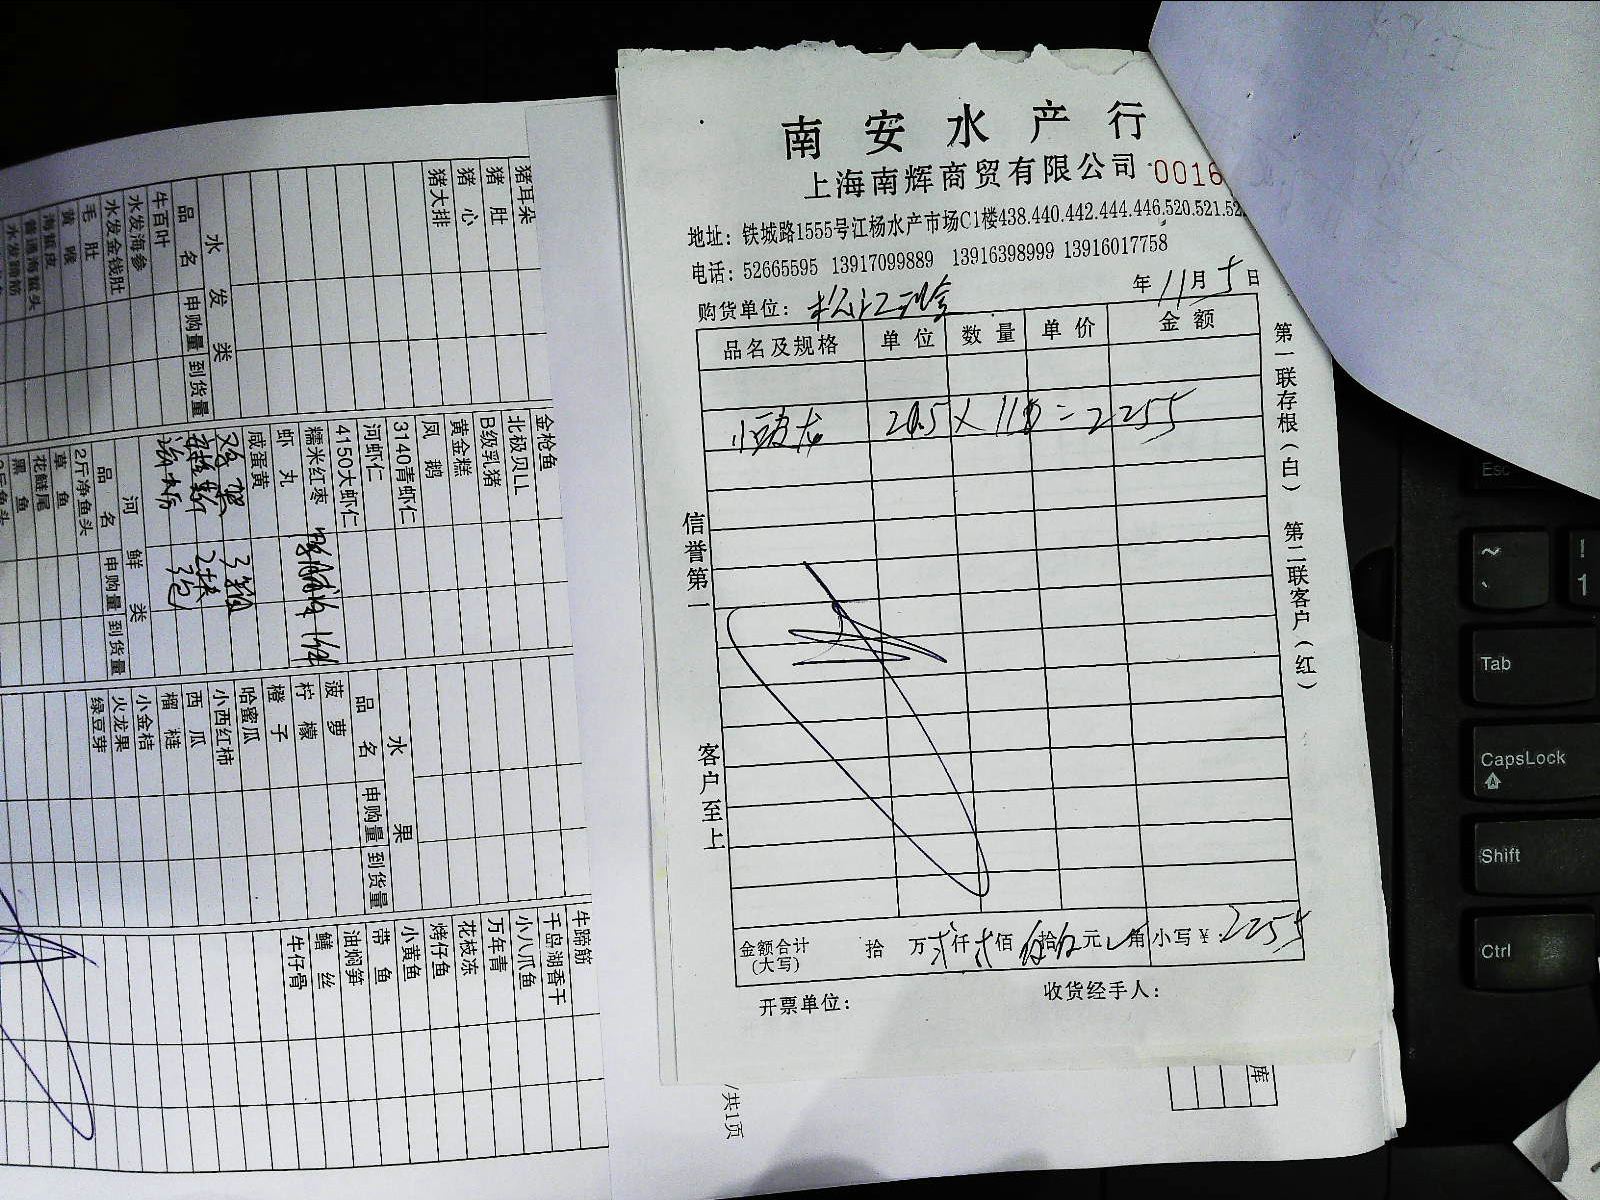 南安水产行
上海南辉商贸有限公司 0016
地址：铁城路1555号江杨水产市场C1楼438.440.442.444.446.520.521.52
电话：52665595 13917099889 13916398999 13916017758
年11月5日
购货单位：松江
品名及规格 单位 数量 单价 金额
小青龙 20.5 × 110 = 2255
信誉第一
客户至上
第一联存根（白） 第二联客户（红）
金额合计（大写） 拾 万贰仟贰佰伍拾伍元 角 小写￥：2255
开票单位： 收货经手人：
猪耳朵
猪肚
猪心
猪大排
水发类
品名 申购量 到货量
牛百叶
水发海参
水发金钱肚
毛肚
黄喉
海蜇皮
普通海蜇头
水发蹄筋
金枪鱼
北极贝LL
B级乳猪
黄金糕
凤鹅
3140青虾仁
河虾仁
4150大虾仁
糯米红枣
虾丸
咸蛋黄
河鲜类
品名 申购量 到货量
2斤净鱼头
草鱼
花鲢尾
黑鱼
水果
品名 申购量 到货量
菠萝
柠檬
橙子
哈蜜瓜
小西红柿
西瓜
榴梿
小金桔
火龙果
绿豆芽
牛蹄筋
千岛湖香干
小八爪鱼
万年青
花枝冻
烤仔鱼
小黄鱼
带鱼
油焖笋
鳝丝
牛仔骨
/共1页
库
Esc
~
`
!
1
Tab
CapsLock
Shift
Ctrl